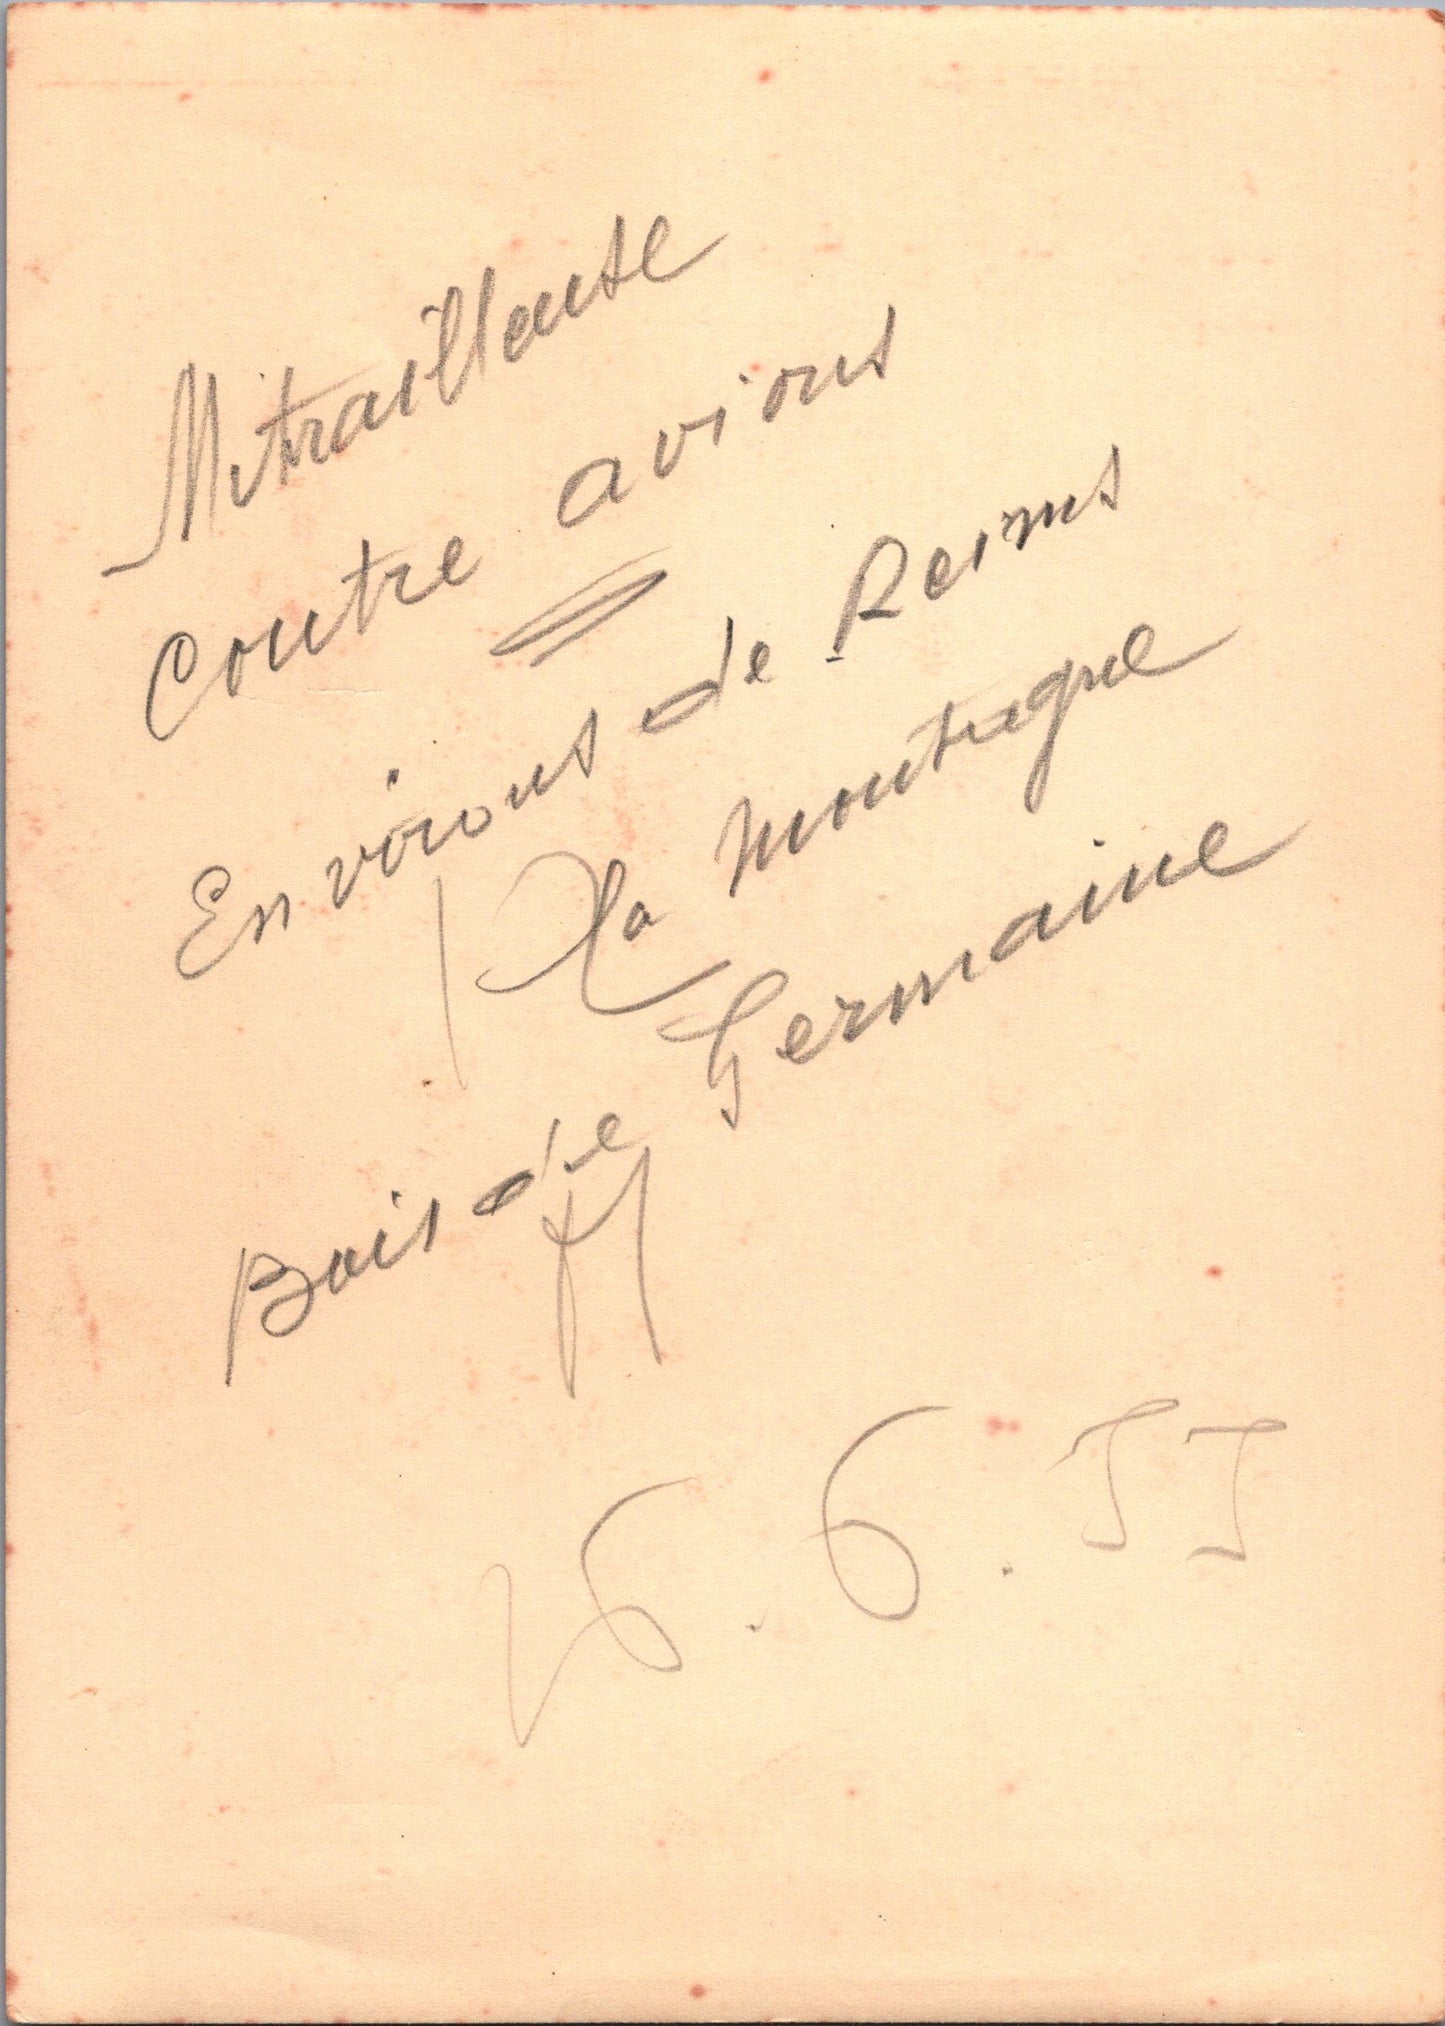 Mitrailleuse
Contre avions
Environs de Reims
La montagne
Bois de Germaine
26.6.55